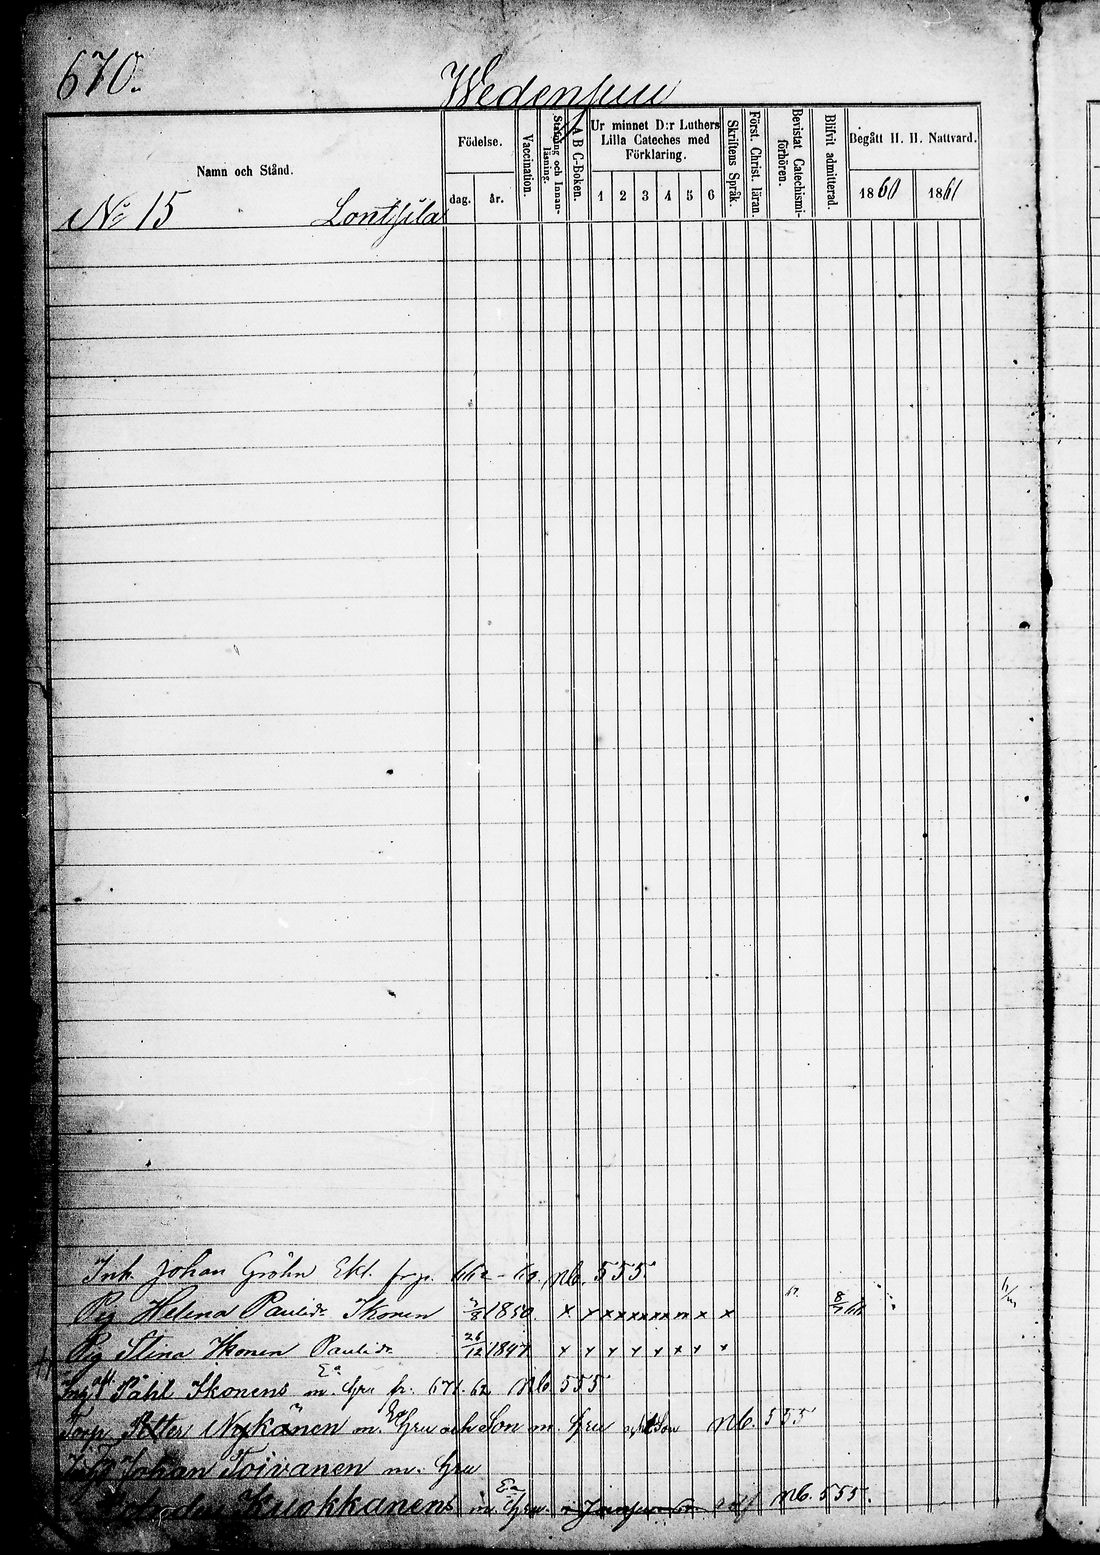 670.
Wedenpuu
Namn och Stånd.
Födelse.
dag.
år.
Vaccination.
Stafning och Innanläsning.
A B C-Boken.
Ur minnet D:r Luthers Lilla Cateches med Förklaring.
1 2 3 4 5 6
Skriftens Språk.
Först. Christ. läran.
Bevistat Catechismiförhören.
Blifvit admitterad.
Begått H. H. Nattvard.
1860 1861
No 15 Lontsila
Inh. Johan Gröhn Ekl. 555
Pig Helena Paulidr Ikonen 1850. x x x x x x x x x x
Pig Stina Ikonen Paulidr 26/12 1847 x x x x x x x x
Påhl Ikonens m. hru fr. 671. 62 Nb 555
Torp. Petter Nykänen m. hru och Son m. hru Nb. 555
Johan Toivanen m. hru
Kuokkanens m. hru Nb. 555.